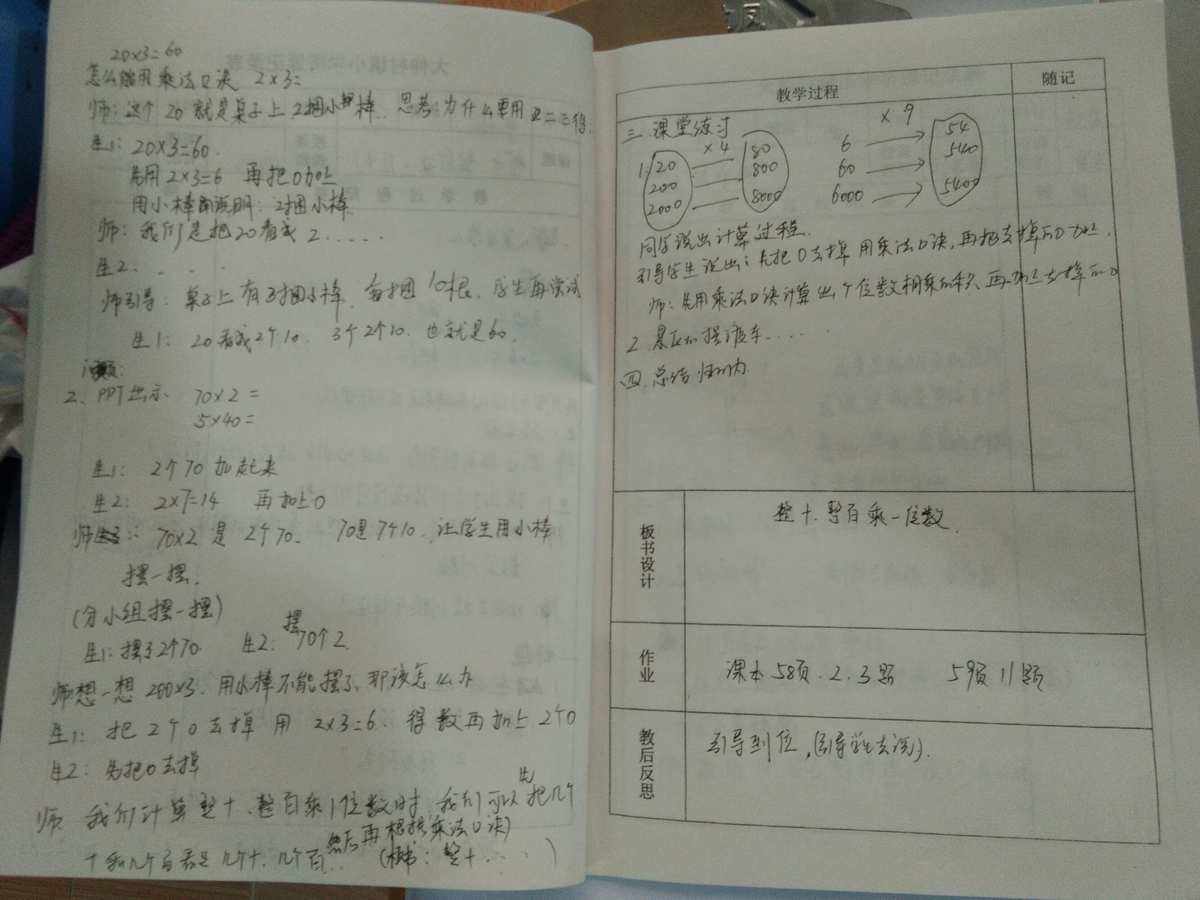 20×3=60
怎么能用乘法口诀 2×3=
师：这个20就是桌子上2捆小棒．思考：为什么要用二三得
生1：20×3=60．
先用2×3=6 再把0加上
用小棒说明：2捆小棒
师：我们是把20看成2．．．．．
生2．．．．
师引导：桌子上有3捆小棒，每捆10根．学生再尝试
生1：20看成2个10．3个2个10．也就是60．
2、PPT出示 70×2=
5×40=
生1：2个70加起来
生2：2×7=14 再加上0
师：70×2是2个70．70是7个10．让学生用小棒
摆一摆．
（分小组摆一摆）
生1：摆了2个70 生2：摆70个2．
师想一想200×3．用小棒不能摆了，那该怎么办
生1：把2个0去掉用2×3=6．得数再加上2个0
生2：先把0去掉
师 我们计算整十、整百乘1位数时，我们可以先把几个
十和几个百看是几个十、几个百．然后再根据乘法口诀
（板书：整十．．．．）
教学过程
随记
三．课堂练习
1. 20 200 2000
×4
80 800 8000
6 60 6000
×9
54 540 5400
同学说出计算过程．
引导学生说出：先把0去掉用乘法口诀，再把去掉的0加上．
师：先用乘法口诀计算出个位数相乘的积，再加上去掉的0
2．
四．总结归纳
板书设计
整十．整百乘一位数．
作业
课本58页．2．3题 59页11题
教后反思
引导到位，（引导学生去说）．